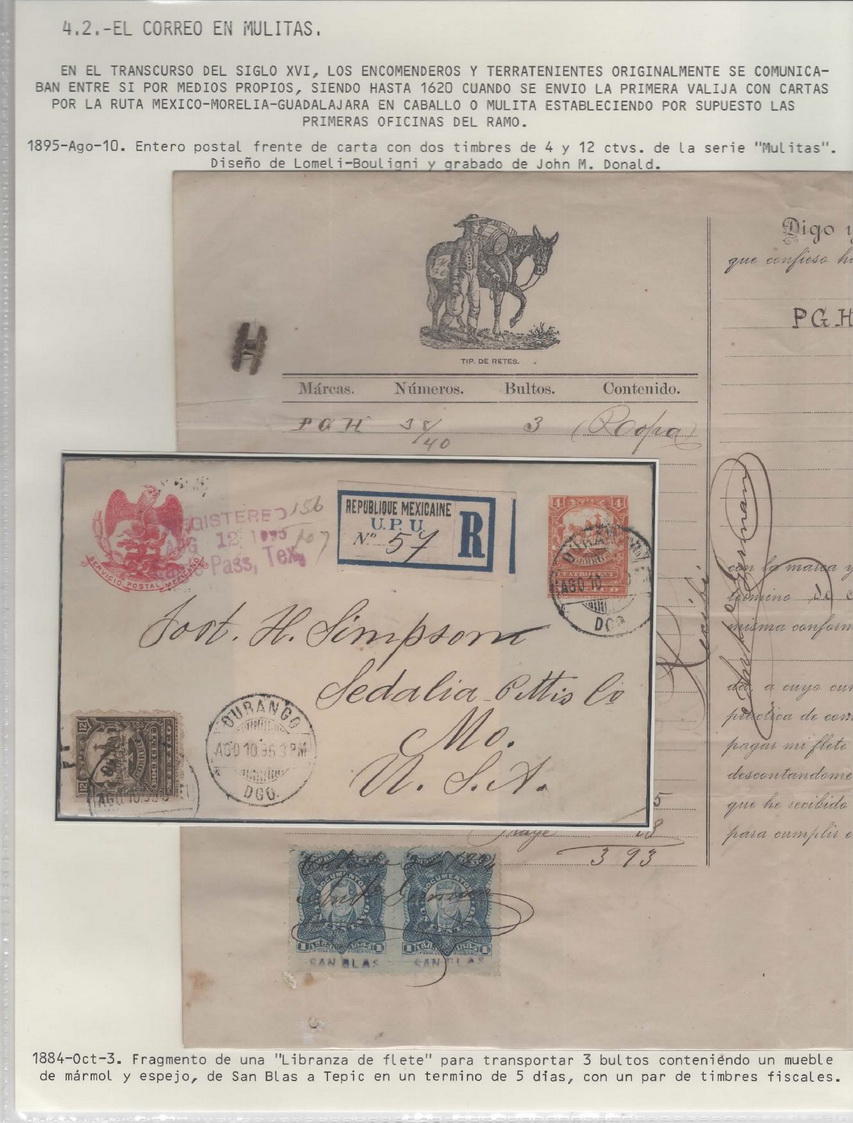 4.2.-EL CORREO EN MULITAS.
EN EL TRANSCURSO DEL SIGLO XVI, LOS ENCOMENDEROS Y TERRATENIENTES ORIGINALMENTE SE COMUNICA-
BAN ENTRE SI POR MEDIOS PROPIOS, SIENDO HASTA 1620 CUANDO SE ENVIO LA PRIMERA VALIJA CON CARTAS
POR LA RUTA MEXICO-MORELIA-GUADALAJARA EN CABALLO O MULITA ESTABLECIENDO POR SUPUESTO LAS
PRIMERAS OFICINAS DEL RAMO.
1895-Ago-10. Entero postal frente de carta con dos timbres de 4 y 12 ctvs. de la serie "Mulitas".
Diseño de Lomeli-Bouligni y grabado de John M. Donald.
Digo y
que confieso
P G H
TIP. DE RETES.
Márcas. Números. Bultos. Contenido.
P G H 38/40 3 (Ropa)
REGISTERED 156
12 1895 107
Pass, Tex.
SERVICIO POSTAL MEXICANO
REPUBLIQUE MEXICAINE
U.P.U.
Nº 57 R
4
DURANGO
AGO 10
DGO.
Post. H. Simpson
Sedalia Pettis Co
Mo.
U.S.A.
12
AGO 10
DURANGO
AGO 10 95 3 PM
DGO.
Recibí
con la marca y
término de
misma conform
a cuyo cum
práctica de
pagar mi flete
descontandome
que he recibido
para cumplir
3 93
DOCUMENTOS
DOCUMENTOS
SAN BLAS SAN BLAS
1884-Oct-3. Fragmento de una "Libranza de flete" para transportar 3 bultos conteniéndo un mueble
de mármol y espejo, de San Blas a Tepic en un termino de 5 dias, con un par de timbres fiscales.